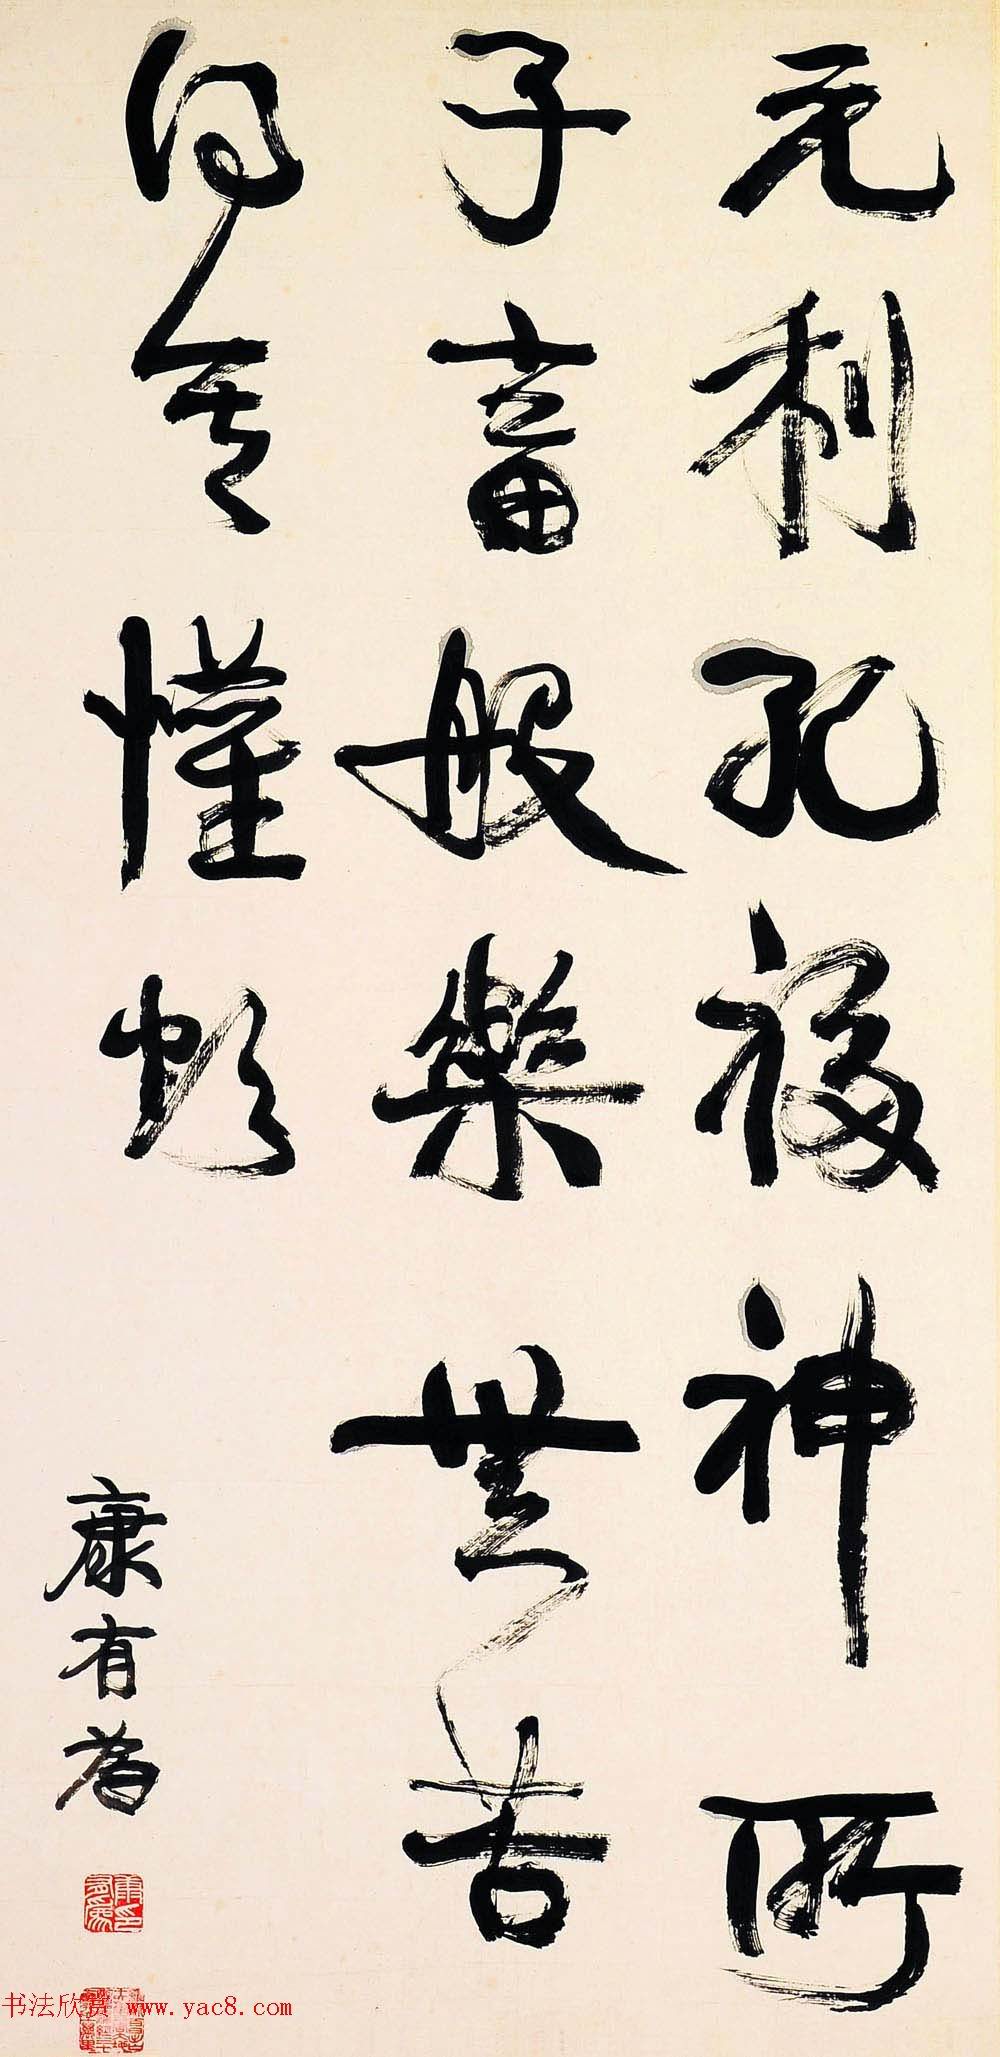 元利孔福神所
子畜般樂無苦
得其懽欣
康有為
书法欣赏 www.yac8.com